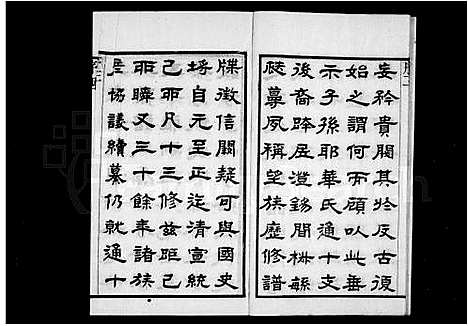 妄矜貴閥其於反古復
始之謂何而顧以此垂
示子孫耶華氏通十支
後裔昣居澄錫閒椒緐
庭蔓夙稱望族歷修譜
牒徵信闕疑可與國史
埒自元至正迄清宣統
己而凡十三修茲距己
而瞬又三十餘年諸族
居協議續纂仍就通十